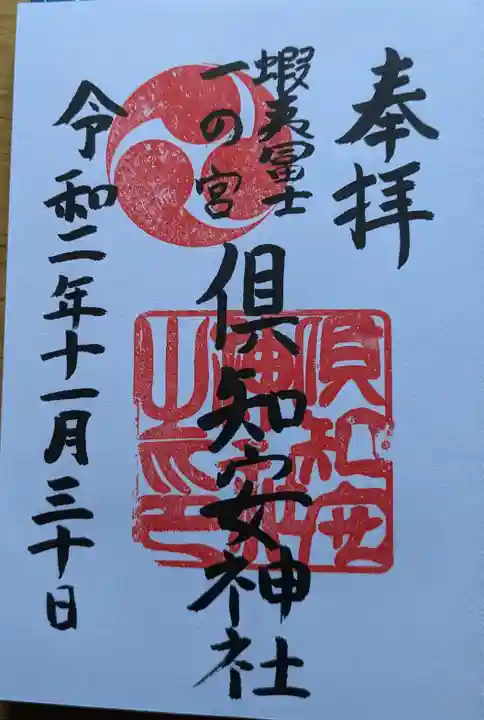 奉拝
蝦夷富士
一の宮
倶知安神社
倶知安
神社
之印
令和二年十一月三十日